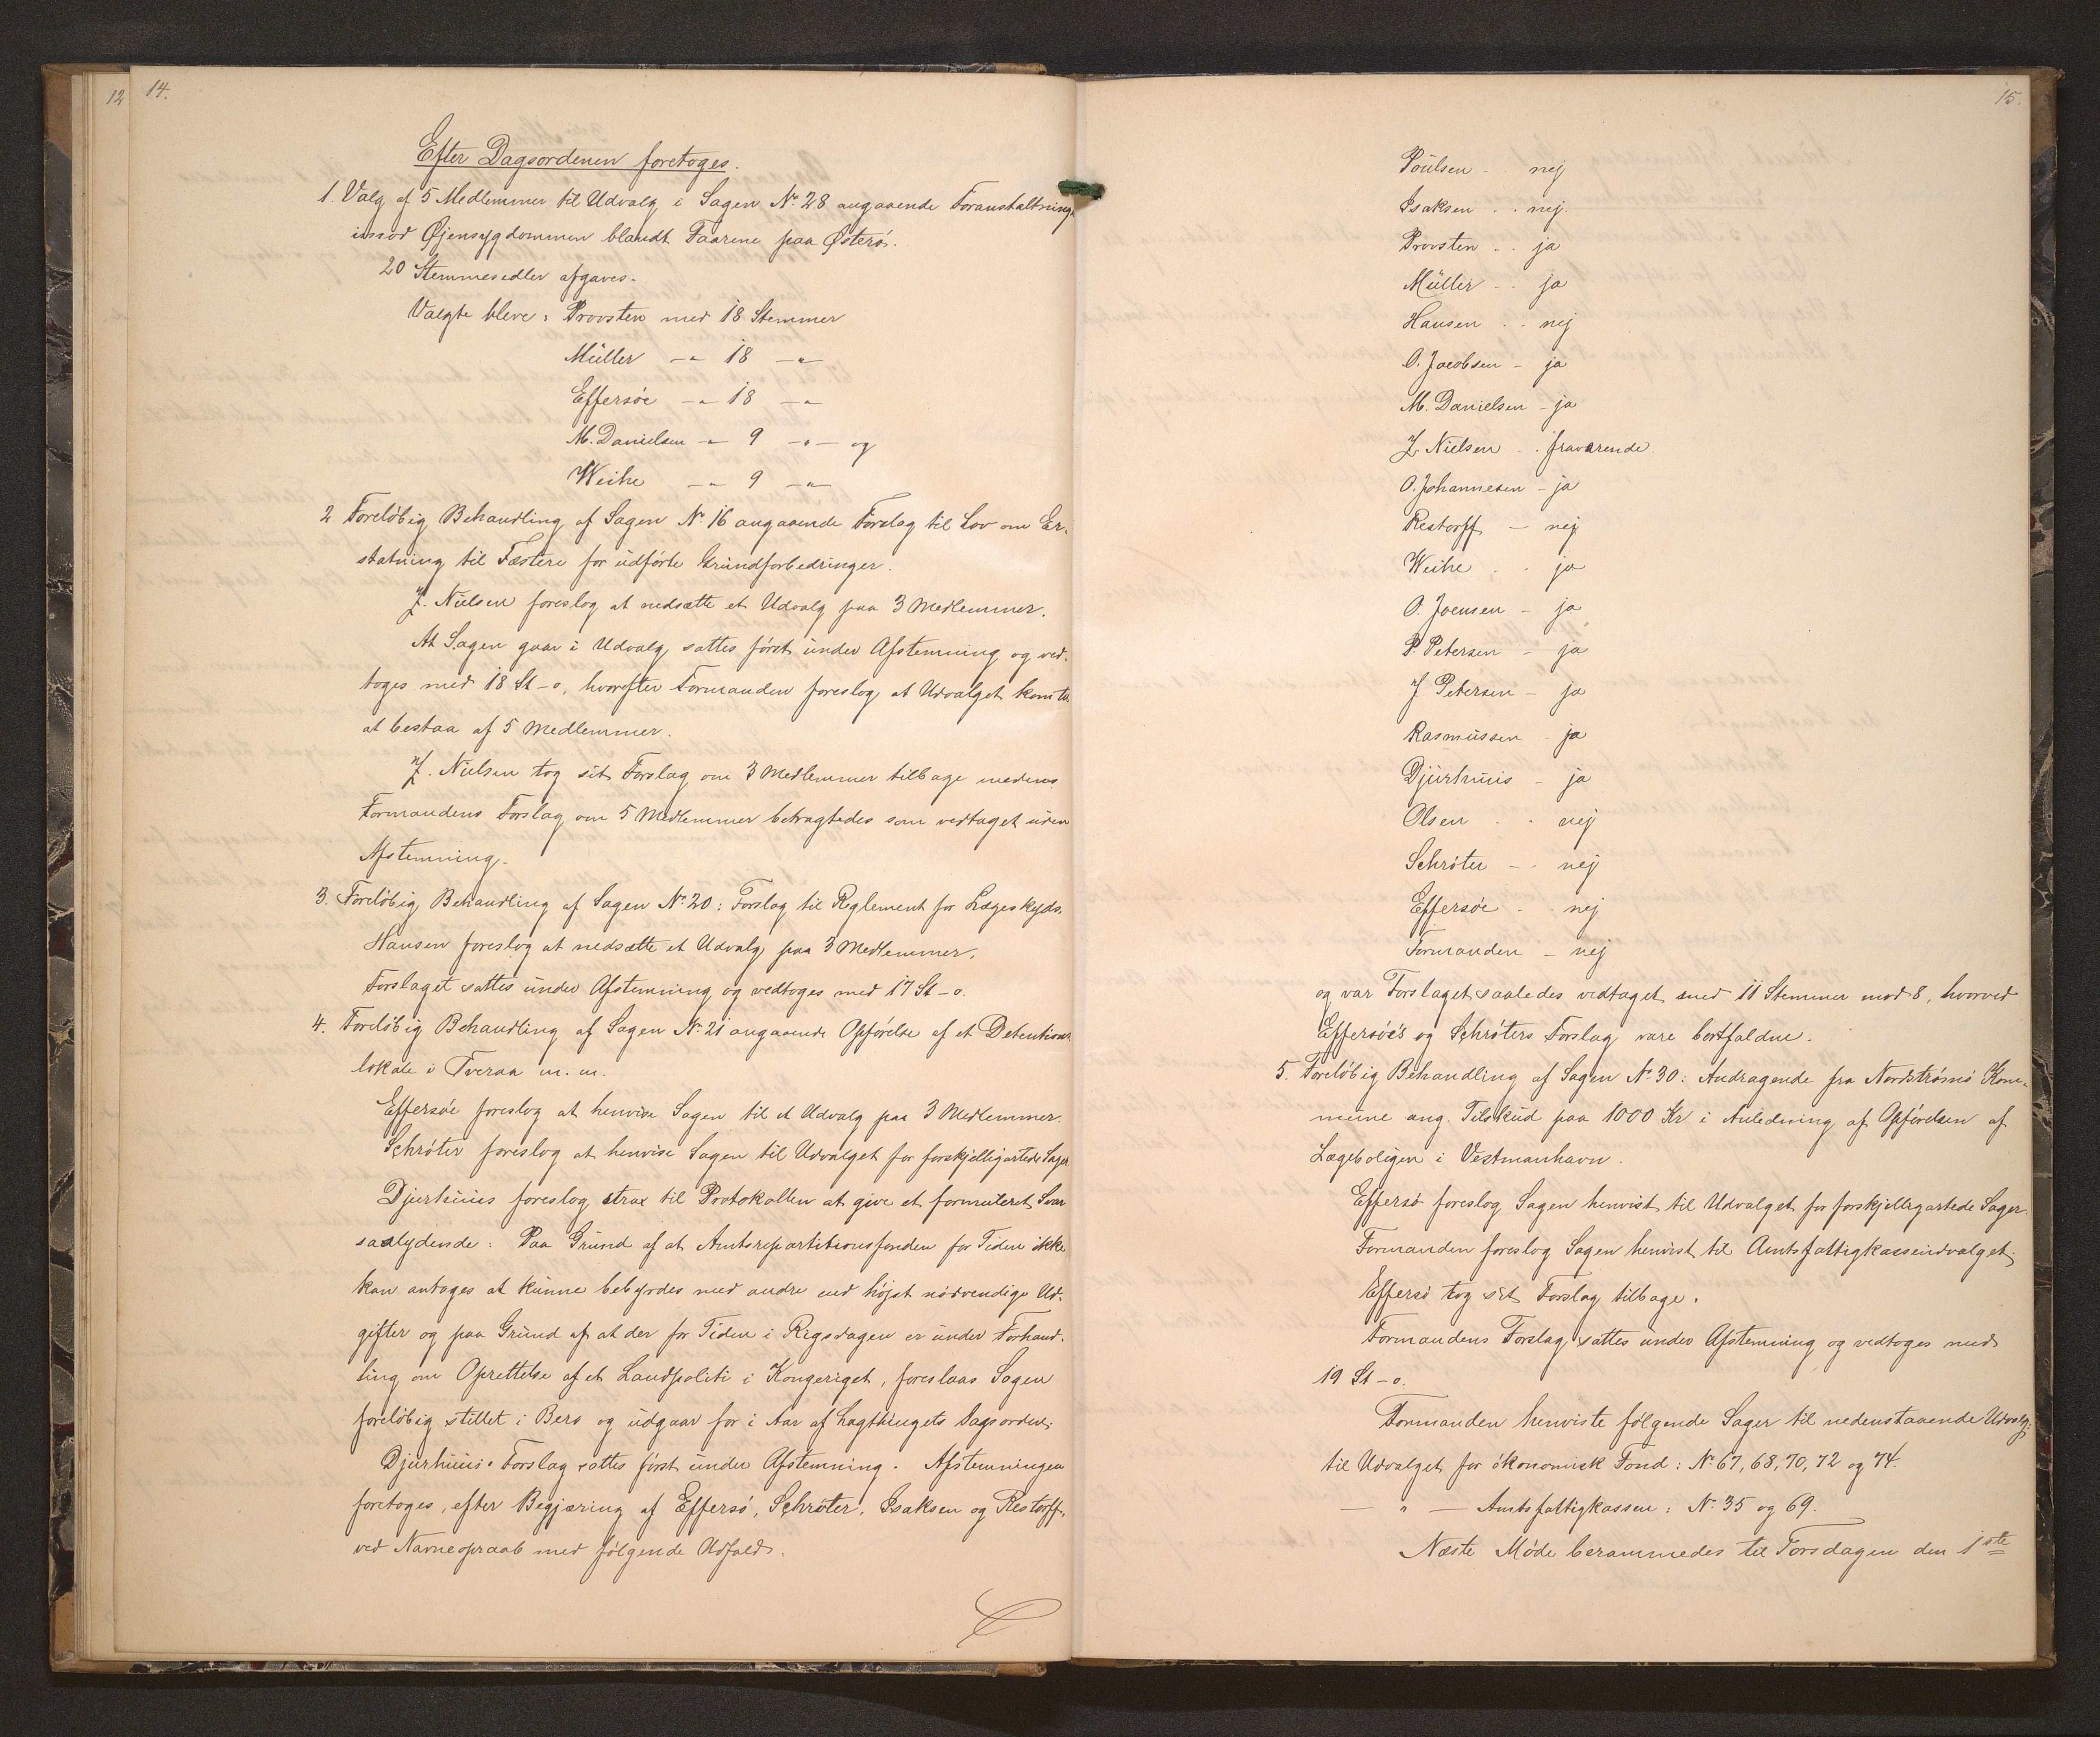 12
14.
Efter Dagsordenen foretoges.
1. Valg af 5 Medlemmer til Udvalg i Sagen No 28 angaaende Foranstaltninge
imod Øjensygdommen blandt Faarene paa Østerø.
20 Stemmesedler afgaves.
Valgte bleve: Provsten med 18 Stemmer
Müller —"— 18 —"—
Effersöe —"— 18 —"—
M. Danielsen —"— 9 —"— og
Weihe —"— 9 —"—
2 Foreløbig Behandling af Sagen No 16 angaaende Forslag til Lov om Er-
statning til Fæstere for udførte Grundforbedringer.
J. Nielsen foreslog at nedsætte et Udvalg paa 3 Medlemmer.
At Sagen gaar i Udvalg sattes først under Afstemning og ved-
toges med 18 St – o, hvorefter Formanden foreslog at Udvalget kom til
at bestaa af 5 Medlemmer.
J. Nielsen tog sit Forslag om 3 Medlemmer tilbage medens
Formandens Forslag om 5 Medlemmer betragtedes som vedtaget uden
Afstemning.
3. Foreløbig Behandling af Sagen No 20: Forslag til Reglement for Lægeskyds.
Hansen foreslog at nedsætte et Udvalg paa 3 Medlemmer.
Forslaget sattes under Afstemning og vedtoges med 17 St – o.
4. Foreløbig Behandling af Sagen No 21 angaaende Opførelse af et Detentions
lokale i Tveraa m. m.
Effersöe foreslog at henvise Sagen til et Udvalg paa 3 Medlemmer.
Schrøter foreslog at henvise Sagen til Udvalget for forskjelligartede Sager
Djurhuus foreslog strax til Protokollen at give et formuleret Svar
saalydende: Paa Grund af at Amtsrepartitionsfonden for Tiden ikke
kan antages at kunne bebyrdes med andre end højst nødvendige Ud-
gifter og paa Grund af at der for Tiden i Rigsdagen er under Forhand-
ling om Oprettelse af et Landpoliti i Kongeriget, foreslaas Sagen
foreløbig stillet i Bero og udgaar for i Aar af Lagthingets Dagsorden.
Djurhuus' Forslag sattes først under Afstemning. Afstemningen
foretoges, efter Begjæring af Effersø, Schrøter, Isaksen og Restorff,
ved Navneopraab med følgende Udfald.
15.
Poulsen - . nej
Isaksen . . nej.
Provsten - . ja
Müller - . ja
Hansen . . nej
O. Jacobsen – ja
M. Danielsen – ja
J. Nielsen . . fraværende.
O. Johannesen – ja
Restorff — nej
Weihe . . ja
O. Joensen – ja
P. Petersen – ja
J Petersen – ja
Rasmussen – ja
Djurhuus – ja
Olsen . . nej
Schrøter – . nej
Effersöe - . nej
Formanden – nej
og var Forslaget saaledes vedtaget med 11 Stemmer mod 8, hvorved
Effersöe's og Schrøters Forslag vare bortfaldne.
5. Foreløbig Behandling af Sagen No 30: Andragende fra Nordstrømø Kom-
mune ang. Tilskud paa 1000 Kr i Anledning af Opførelsen af
Lægeboligen i Vestmanhavn.
Effersø foreslog Sagen henvist til Udvalget for forskjelligartede Sager.
Formanden foreslog Sagen henvist til Amtsfattigkasseudvalget.
Effersø tog sit Forslag tilbage.
Formandens Forslag sattes under Afstemning og vedtoges med
19 St – o.
Formanden henviste følgende Sager til nedenstaaende Udvalg:
til Udvalget for økonomisk Fond: No 67, 68, 70, 72 og 74.
— " — Amtsfattigkassen: No 35 og 69.
Næste Møde berammedes til Torsdagen den 1ste